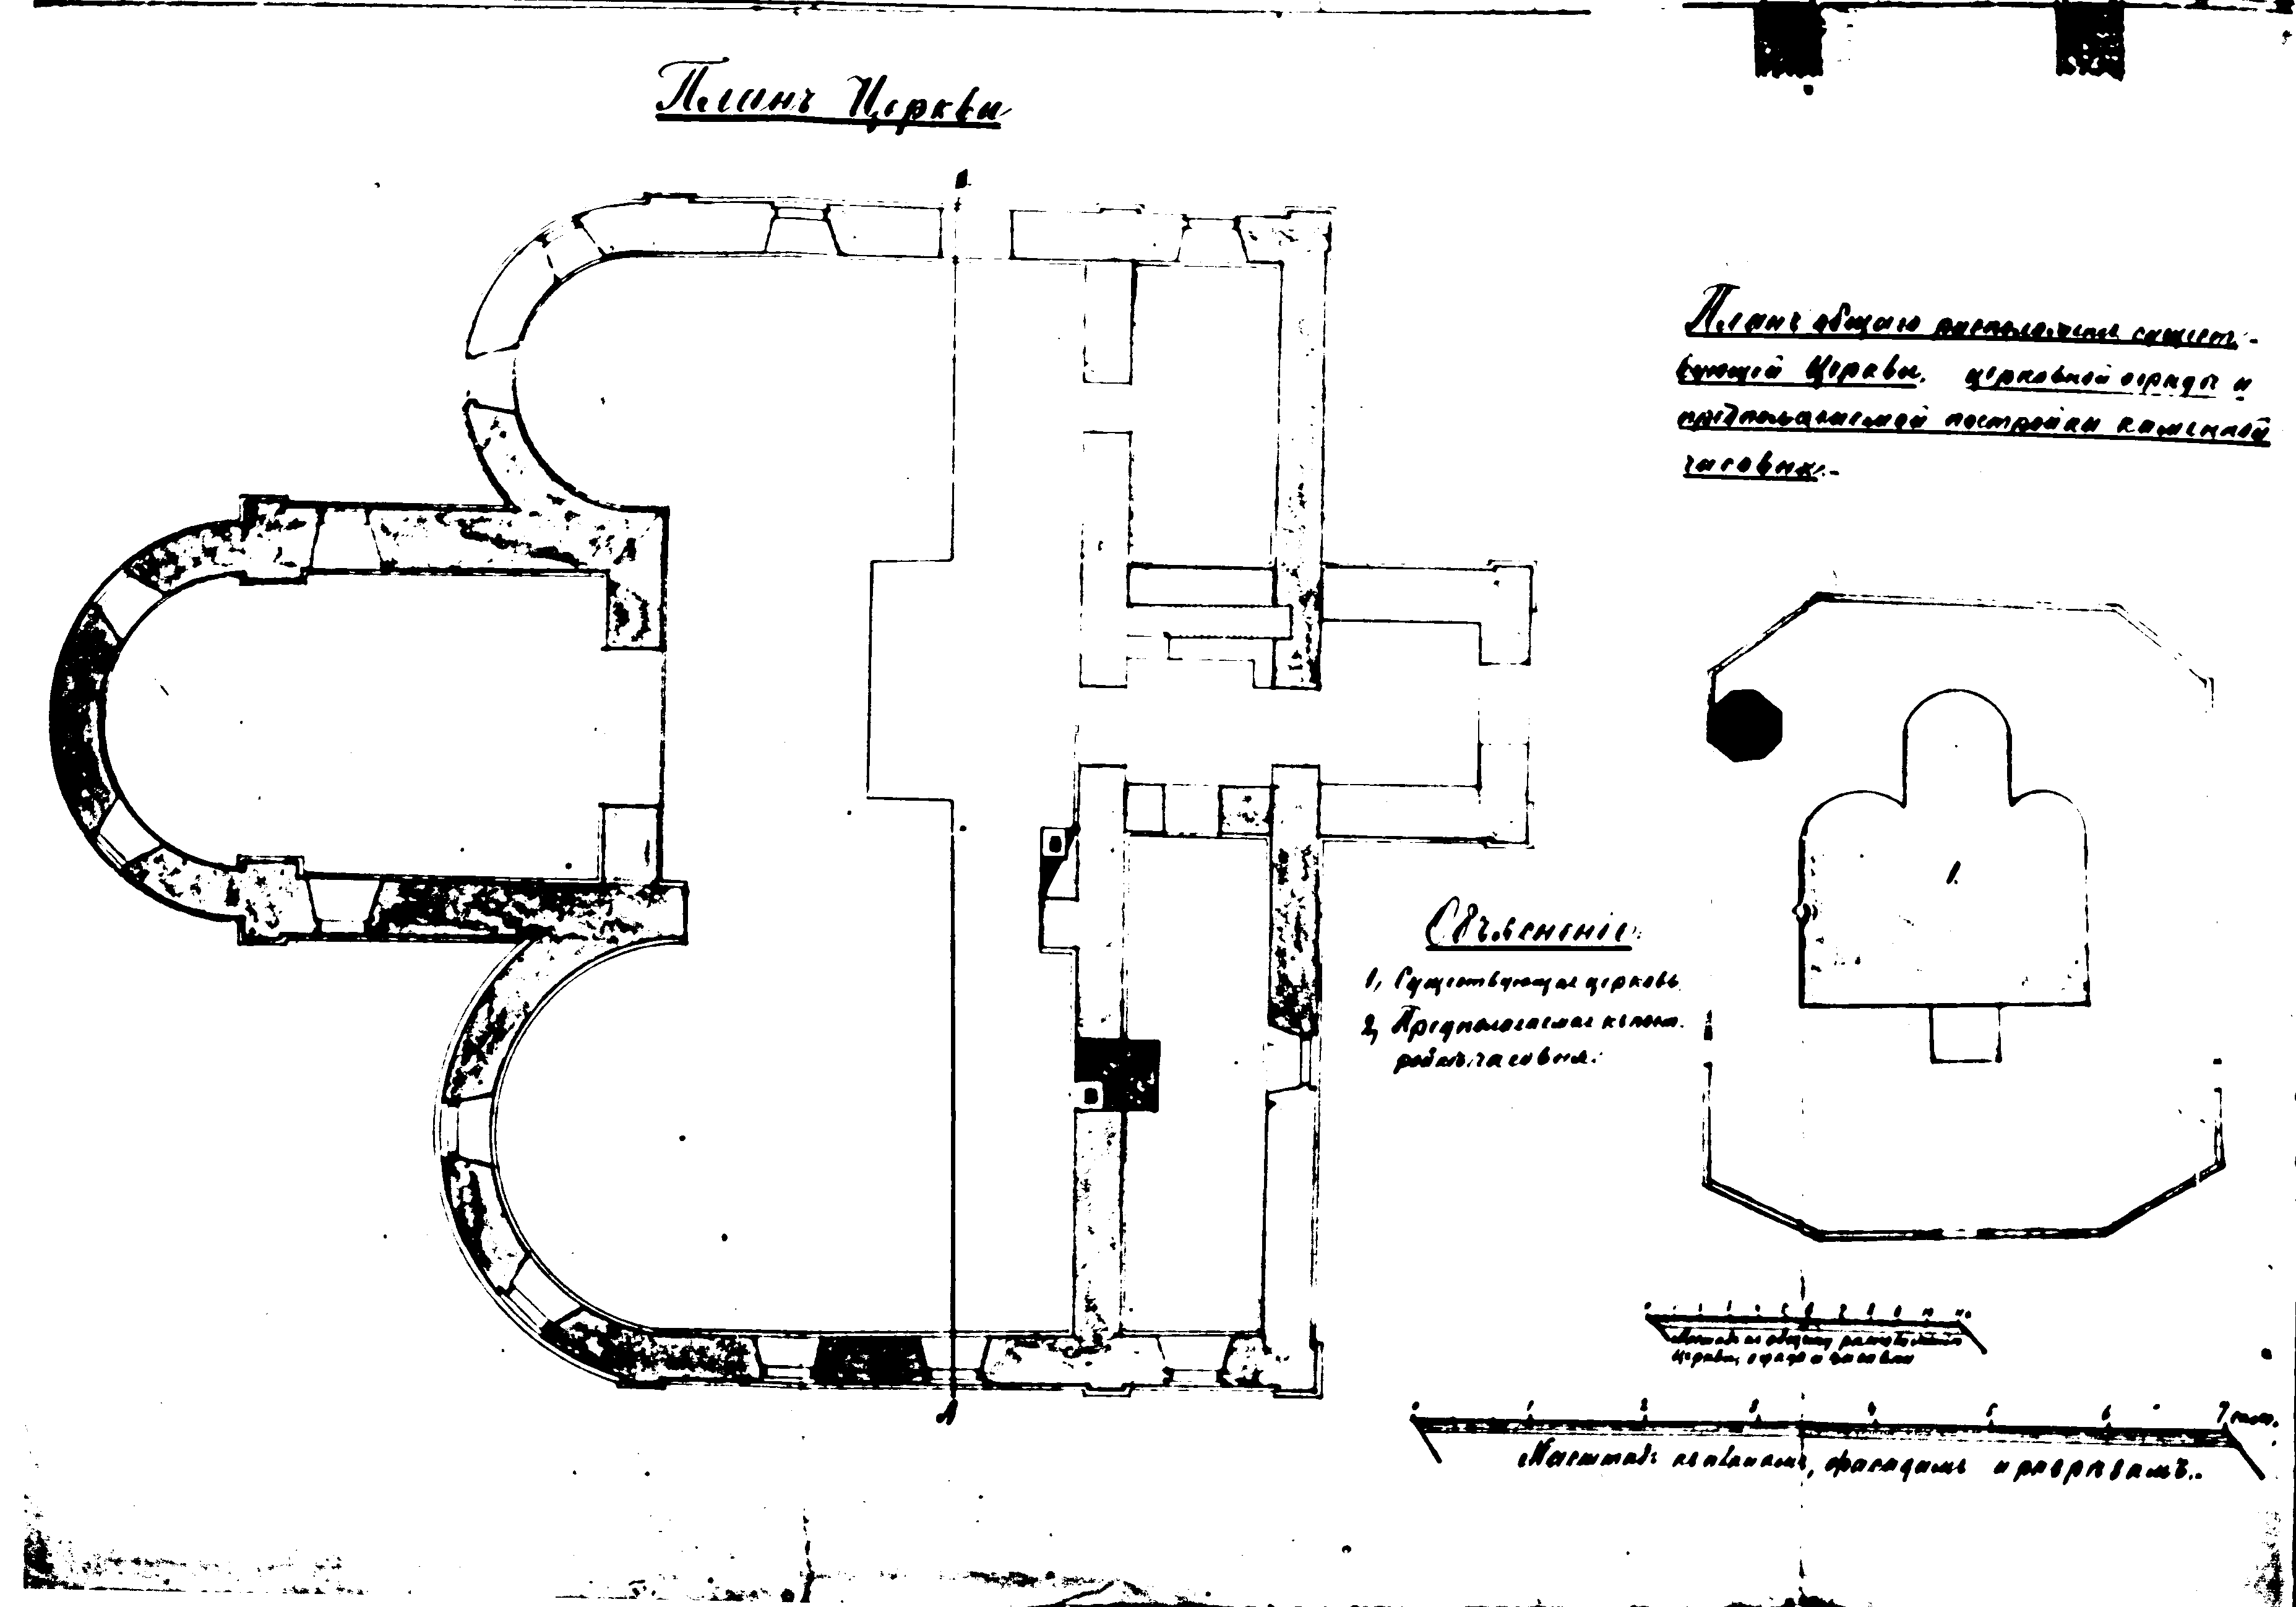 Планъ Церкви
Планъ общаго расположенія сущест-
вующей Церкви, церковной ограды и
предполагаемой постройки каменной
часовни.-
1.
Объясненіе:
1, Существующая церковь.
2, Предполагаемая къ пост.
ройкѣ часовня.
Масштабъ къ общему расположенію
Церкви, ограды и часовни
0 1 2 3 4 5 6 7 саж.
Масштабъ къ планамъ, фасадамъ и разрѣзамъ.